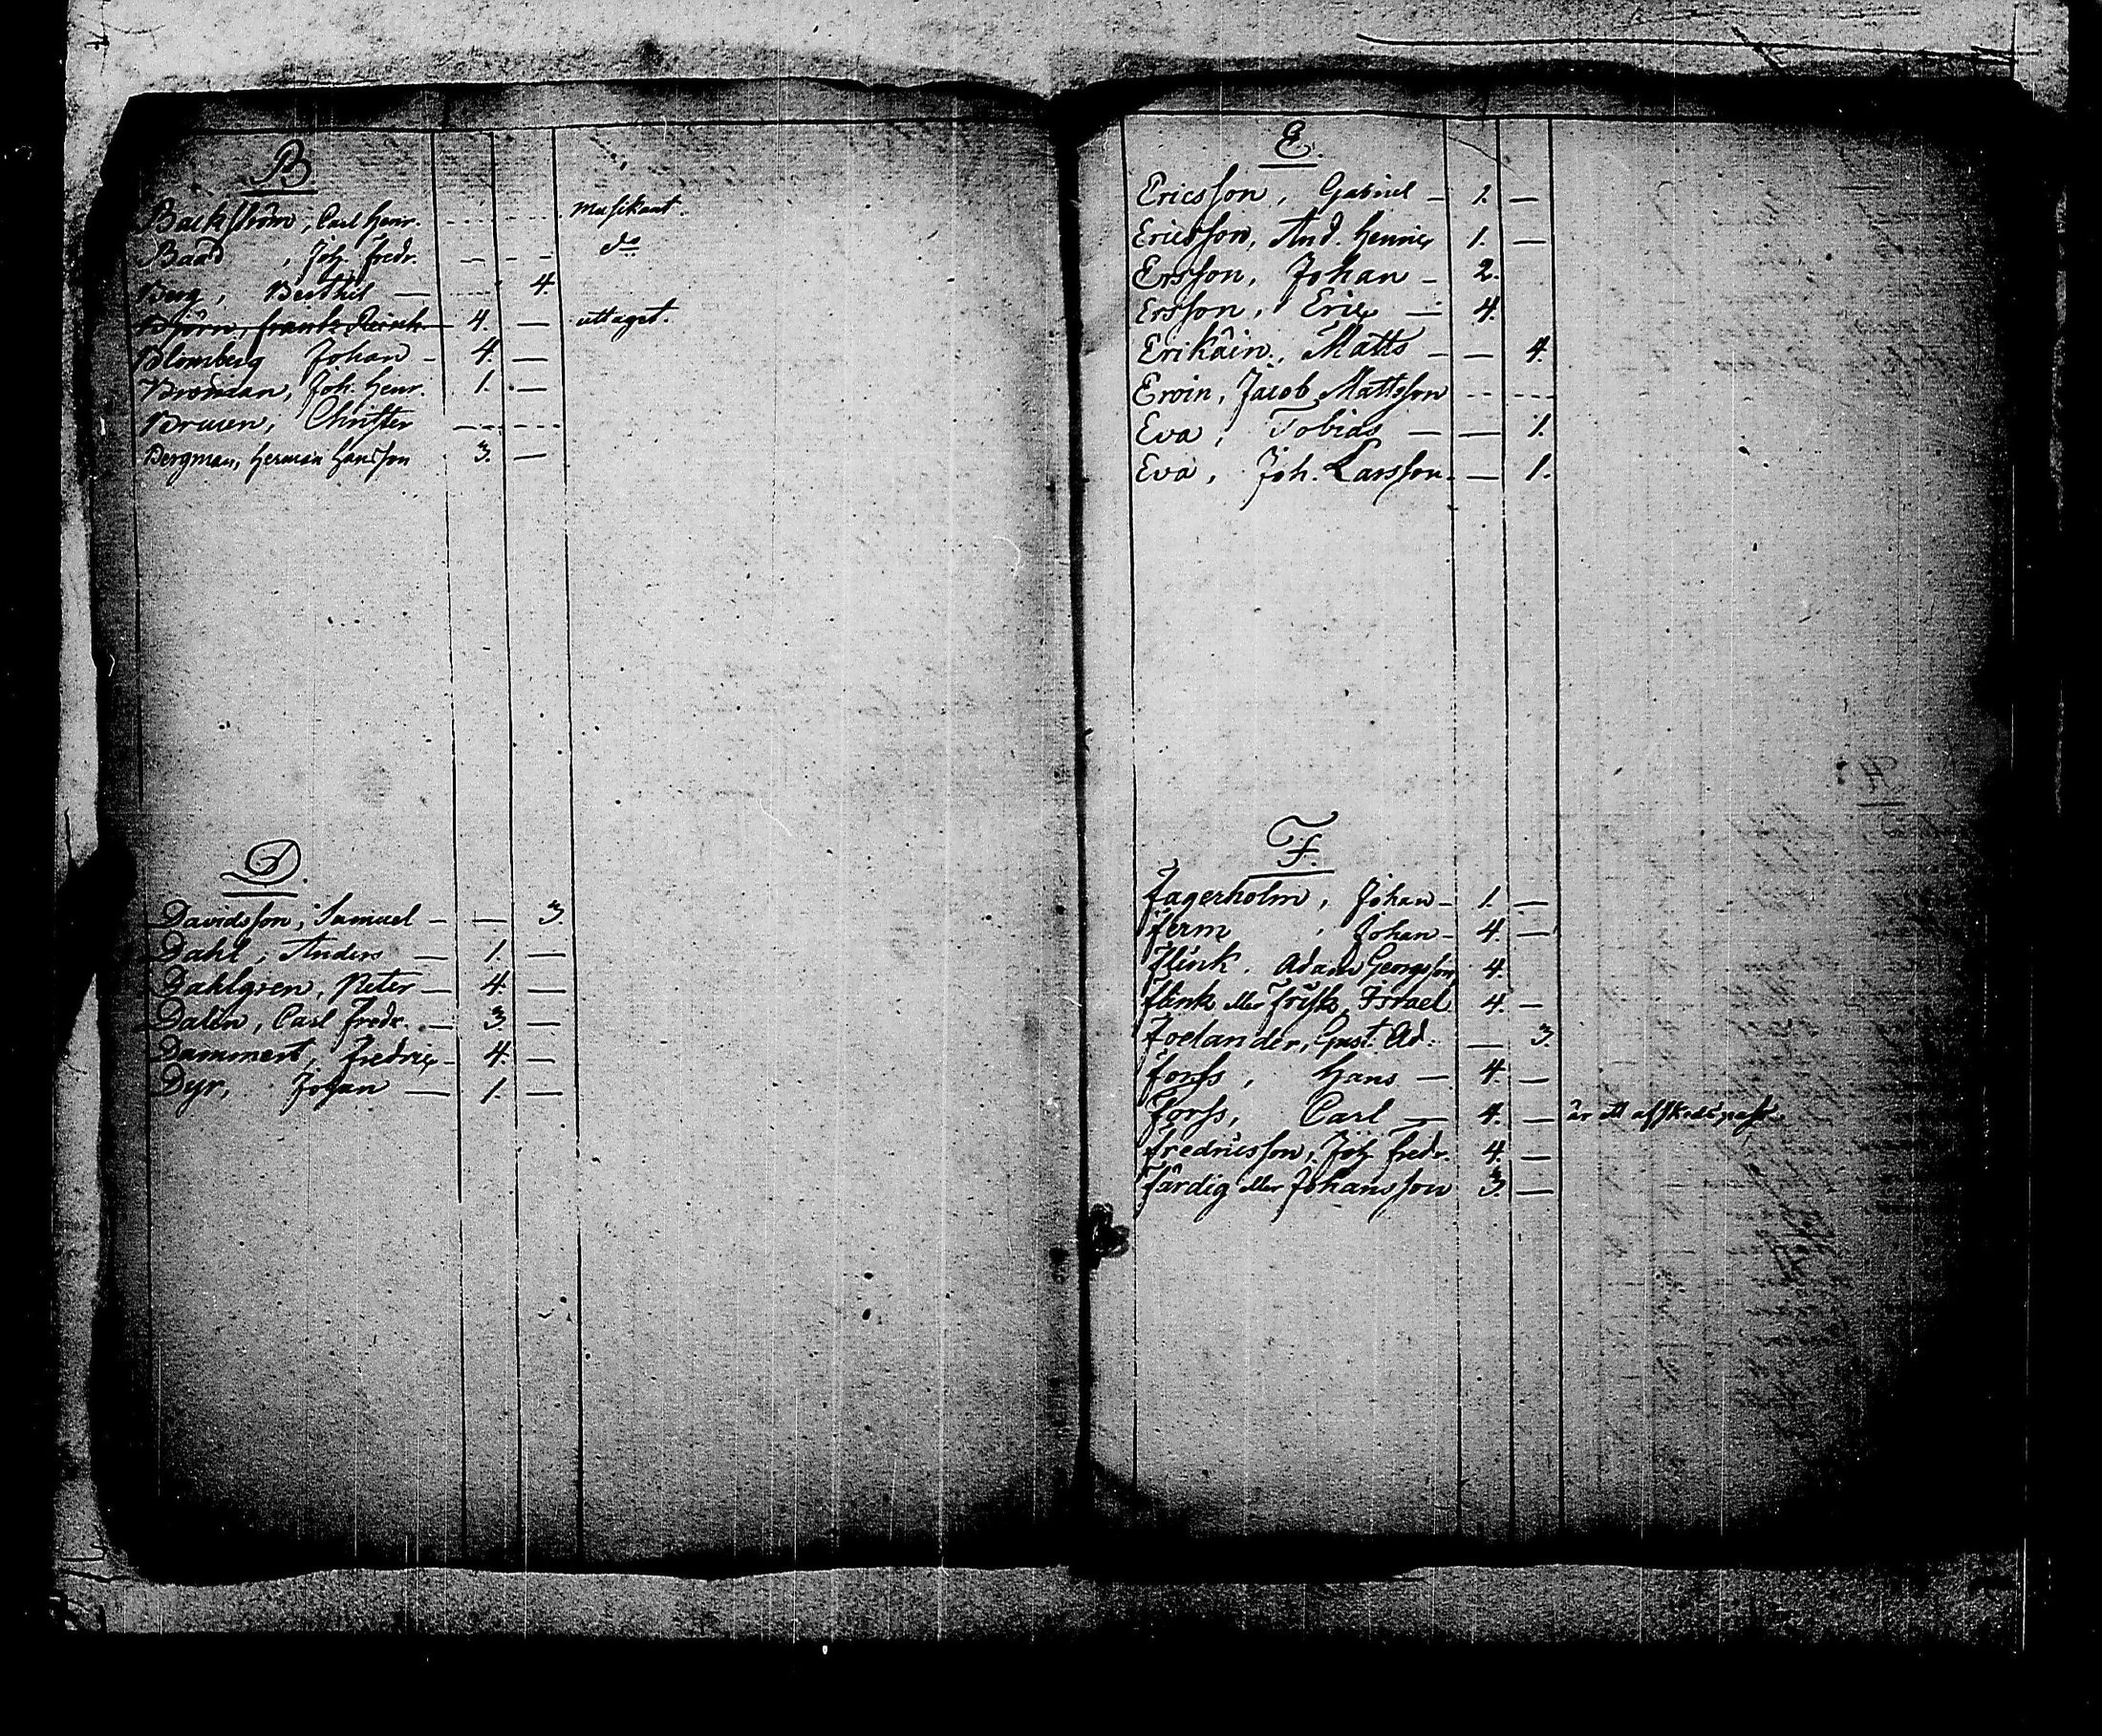 B
Backström, Carl Henr. - - - - - - Musikant.
Baad, Joh. Fredr. — - - - do
Berg, Berthil — - - - 4.
Björn, Frantz 4. — uttaget.
Blomberg Johan - 4. —
Broman, Joh. Henr. 1. —
Bruun, Christer - - - - - -
Bergman, Herman Hansson 3. —
D.
Davidsson, Samuel - — 3.
Dahl, Anders — 1. —
Dahlgren, Peter — 4. —
Dalen, Carl Fredr. — 3. —
Dammert, Fredric - 4. —
Dyr, Johan — 1. —
E.
Ericsson, Gabriel - 1. —
Ericsson, And. Henric 1. —
Ersson, Johan - 2.
Ersson, Eric — 4.
Erikäin, Matts - — 4.
Ervin, Jacob Mattsson - - - - -
Eva, Tobias — — 1.
Eva, Joh. Larsson. — 1.
F.
Fagerholm, Johan - 1. —
Ferm, Johan - 4. —
Flink. Adam Georgsson 4.
Flink eller Frisk, Israel 4. —
Foelander, Gust. Ad. — 3.
Forss, Hans — 4. —
Forss, Carl — 4. — är ett afskedspass.
Fredricsson, Joh. Fredr. 4. —
Färdig eller Johansson 3. —